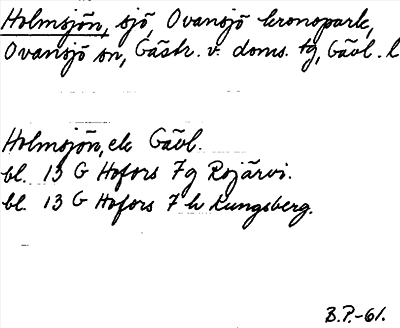 Holmsjön, sjö, Ovansjö kronopark,
Ovansjö sn, Gästr. v. doms. tg, Gävl. l
Holmsjön, ek Gävl.
bl. 13 G Hofors 7g Rojärvi.
bl. 13 G Hofors 7 h Kungsberg.
B.P.-61.